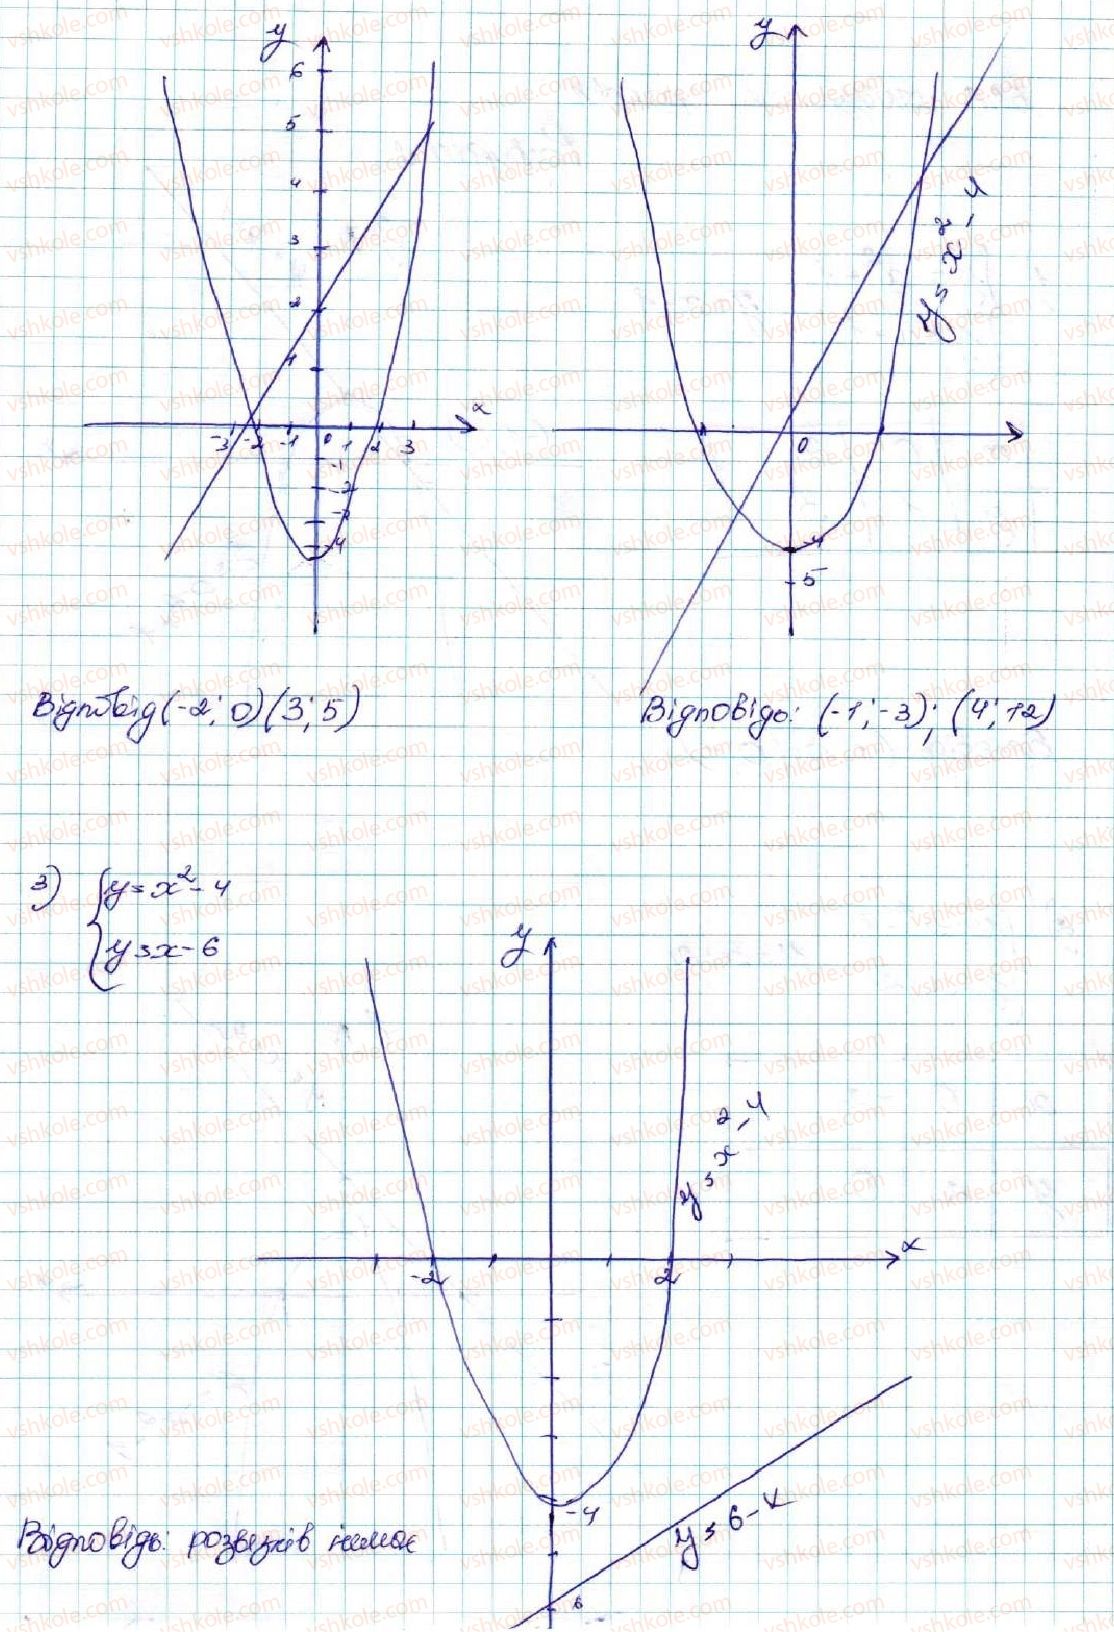 y
6
5
4
3
2
1
-3 -2 -1 0 1 2 3 x
-1
-2
-4
y
y=x²-4
0
-4
5
Відповід (-2; 0) (3; 5)
Відповідь: (-1; -3); (4; 12)
3) { y=x²-4
y=x-6
y
y=x²-4
x
-2 2
-4
y=6-x
6
Відповідь: розвязків немає
vshkole.com